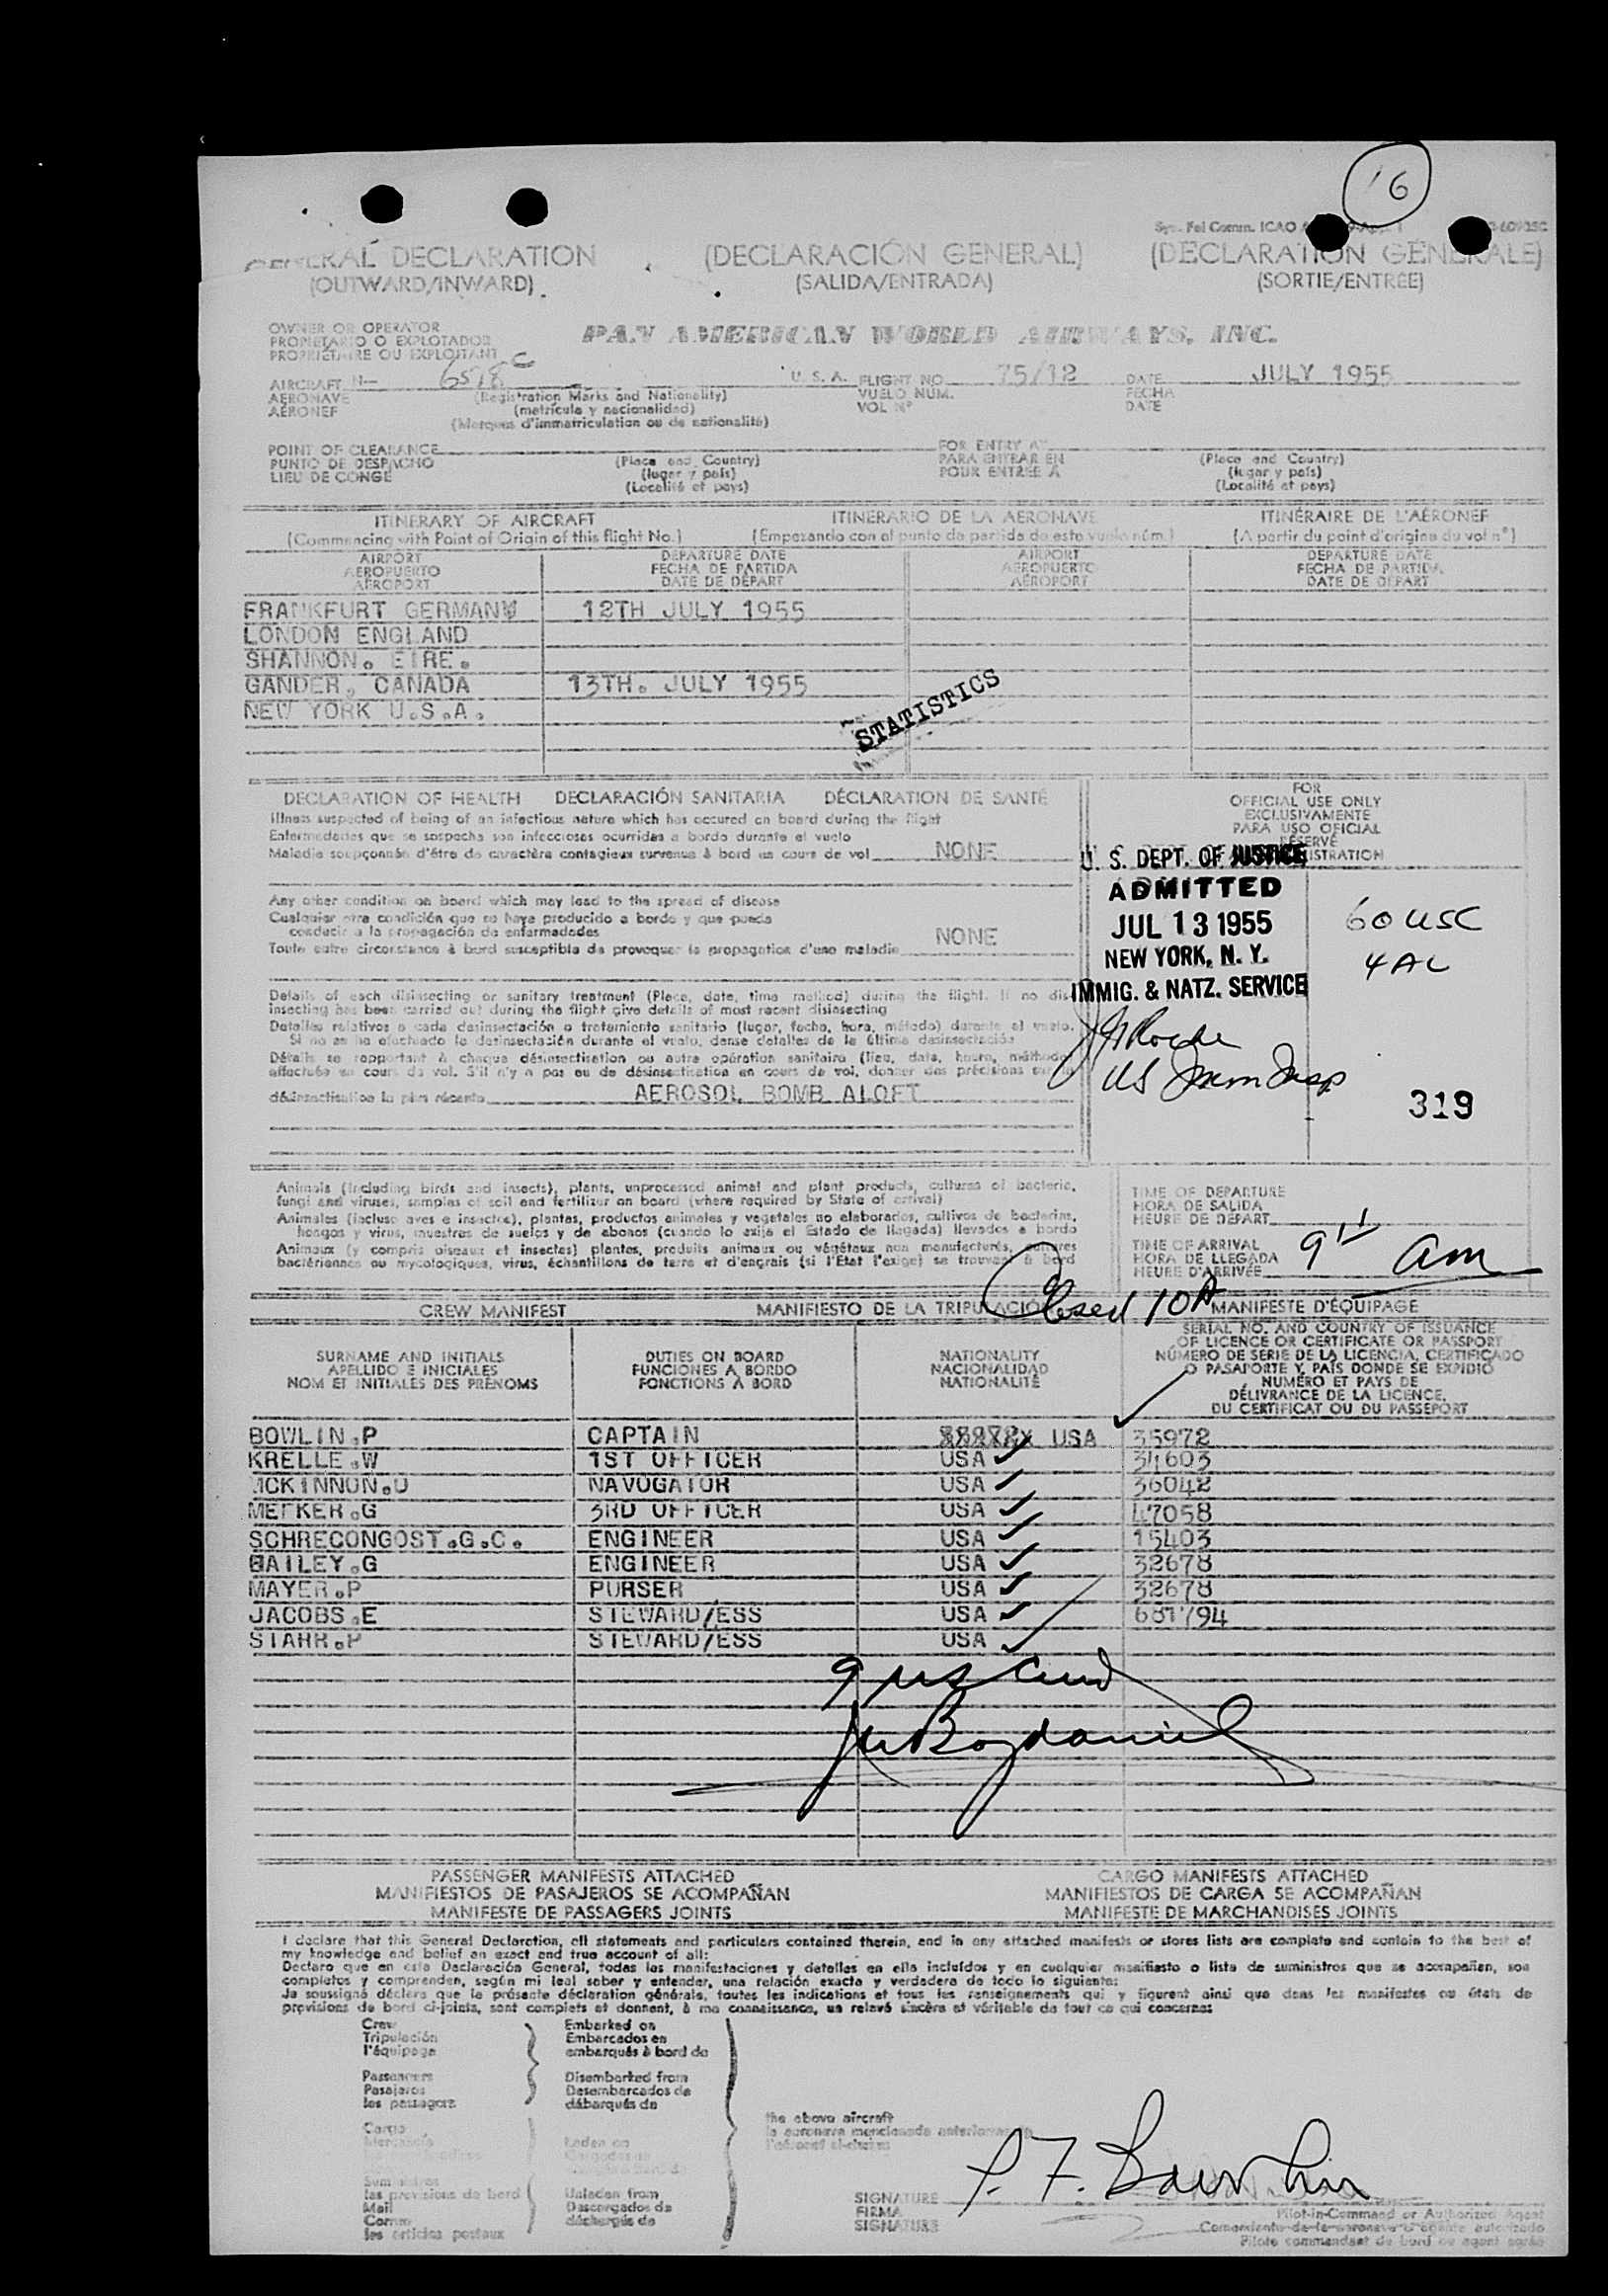 16
GENERAL DECLARATION (DECLARACIÓN GENERAL) (DECLARATION GÉNÉRALE)
(OUTWARD/INWARD) (SALIDA/ENTRADA) (SORTIE/ENTRÉE)
OWNER OR OPERATOR
PROPIETARIO O EXPLOTADOR
PROPRIÉTAIRE OU EXPLOITANT
PAN AMERICAN WORLD AIRWAYS, INC.
AIRCRAFT N— 6518C U. S. A. FLIGHT NO. 75/12 DATE JULY 1955
AERONAVE (Registration Marks and Nationality) VUELO NÚM. FECHA
AÉRONEF (matrícula y nacionalidad) VOL Nº DATE
(Marques d'immatriculation ou de nationalité)
POINT OF CLEARANCE FOR ENTRY AT
PUNTO DE DESPACHO (Place and Country) PARA ENTRAR EN (Place and Country)
LIEU DE CONGÉ (lugar y país) POUR ENTRÉE À (lugar y país)
(Localité et pays) (Localité et pays)
ITINERARY OF AIRCRAFT ITINERARIO DE LA AERONAVE ITINÉRAIRE DE L'AÉRONEF
(Commencing with Point of Origin of this flight No.) (Empezando con el punto de partida de este vuelo núm.) (A partir du point d'origine du vol nº)
AIRPORT DEPARTURE DATE AIRPORT DEPARTURE DATE
AEROPUERTO FECHA DE PARTIDA AEROPUERTO FECHA DE PARTIDA
AÉROPORT DATE DE DÉPART AÉROPORT DATE DE DÉPART
FRANKFURT GERMANY 12TH JULY 1955
LONDON ENGLAND
SHANNON. EIRE.
GANDER, CANADA 13TH. JULY 1955
NEW YORK U.S.A.
STATISTICS
DECLARATION OF HEALTH DECLARACIÓN SANITARIA DÉCLARATION DE SANTÉ
Illness suspected of being of an infectious nature which has occured on board during the flight
Enfermedades que se sospecha son infecciosas ocurridas a bordo durante el vuelo
Maladie soupçonnée d'être de caractère contagieux survenue à bord en cours de vol NONE
FOR
OFFICIAL USE ONLY
EXCLUSIVAMENTE
PARA USO OFICIAL
RÉSERVÉ
U. S. DEPT. OF JUSTICE
ADMITTED
JUL 13 1955
NEW YORK, N. Y.
IMMIG. & NATZ. SERVICE
60 USC
4 AL
US Imm Insp
319
Any other condition on board which may lead to the spread of disease
Cualquier otra condición que se haya producido a bordo y que pueda
conducir a la propagación de enfermedades
Toute autre circonstance à bord susceptible de provoquer la propagation d'une maladie NONE
Details of each disinsecting or sanitary treatment (Place, date, time method) during the flight. If no dis-
insecting has been carried out during the flight give details of most recent disinsecting
Detalles relativos a cada desinsectación o tratamiento sanitario (lugar, fecha, hora, método) durante el vuelo.
Si no se ha efectuado la desinsectación durante el vuelo, dense detalles de la última desinsectación
Détails se rapportant à chaque désinsectisation ou autre opération sanitaire (lieu, date, heure, méthode)
effectuée en cours de vol. S'il n'y a pas eu de désinsectisation en cours de vol, donner des précisions sur la
désinsectisation la plus récente AEROSOL BOMB ALOFT
Animals (including birds and insects), plants, unprocessed animal and plant products, cultures of bacteria,
fungi and viruses, samples of soil and fertilizer on board (where required by State of arrival)
Animales (incluso aves e insectos), plantas, productos animales y vegetales no elaborados, cultivos de bacterias,
hongos y virus, muestras de suelos y de abonos (cuando lo exija el Estado de llegada) llevados a bordo
Animaux (y compris oiseaux et insectes) plantes, produits animaux ou végétaux non manufacturés, cultures
bactériennes ou mycologiques, virus, échantillons de terre et d'engrais (si l'État l'exige) se trouvant à bord
TIME OF DEPARTURE
HORA DE SALIDA
HEURE DE DÉPART
TIME OF ARRIVAL
HORA DE LLEGADA
HEURE D'ARRIVÉE 9 11 am
Closed 10A
CREW MANIFEST MANIFIESTO DE LA TRIPULACIÓN MANIFESTE D'ÉQUIPAGE
SURNAME AND INITIALS DUTIES ON BOARD NATIONALITY
APELLIDO E INICIALES FUNCIONES A BORDO NACIONALIDAD
NOM ET INITIALES DES PRÉNOMS FONCTIONS À BORD NATIONALITÉ
SERIAL NO. AND COUNTRY OF ISSUANCE
OF LICENCE OR CERTIFICATE OR PASSPORT
NÚMERO DE SERIE DE LA LICENCIA, CERTIFICADO
O PASAPORTE Y PAÍS DONDE SE EXPIDIÓ
NUMÉRO ET PAYS DE
DÉLIVRANCE DE LA LICENCE,
DU CERTIFICAT OU DU PASSEPORT
BOWLIN.P CAPTAIN USA 35972
KRELLE.W 1ST OFFICER USA 34603
MCKINNON.D NAVUGATOR USA 36042
METKER.G 3RD OFFICER USA 47058
SCHRECONGOST.G.C. ENGINEER USA 15403
BAILEY.G ENGINEER USA 32678
MAYER.P PURSER USA 32678
JACOBS.E STEWARD/ESS USA 681794
STARR.P STEWARD/ESS USA
9 US
PASSENGER MANIFESTS ATTACHED CARGO MANIFESTS ATTACHED
MANIFIESTOS DE PASAJEROS SE ACOMPAÑAN MANIFIESTOS DE CARGA SE ACOMPAÑAN
MANIFESTE DE PASSAGERS JOINTS MANIFESTE DE MARCHANDISES JOINTS
I declare that this General Declaration, all statements and particulars contained therein, and in any attached manifests or stores lists are complete and contain to the best of
my knowledge and belief an exact and true account of all:
Declaro que en esta Declaración General, todas las manifestaciones y detalles en ella incluídos y en cualquier manifiesto o lista de suministros que se acompañen, son
completos y comprenden, según mi leal saber y entender, una relación exacta y verdadera de todo lo siguiente:
Je soussigné déclare que la présente déclaration générale, toutes les indications et tous les renseignements qui y figurent ainsi que dans les manifestes ou états de
provisions de bord ci-joints, sont complets et donnent, à ma connaissance, un relevé sincère et véritable de tout ce qui concerne:
Crew Embarked on
Tripulación Embarcados en
l'équipage embarqués à bord de
Passengers Disembarked from
Pasajeros Desembarcados de
les passagers débarqués de
the above aircraft
la aeronave mencionada anteriormente
Cargo Laden on
les provisions de bord Unladen from
Mail Descargados de
Correo déchargés de
les articles postaux
SIGNATURE P. F. Bowlin
FIRMA Pilot-in-Command or Authorized Agent
SIGNATURE Comandante de la aeronave o agente autorizado
Pilote commandant de bord ou agent agréé